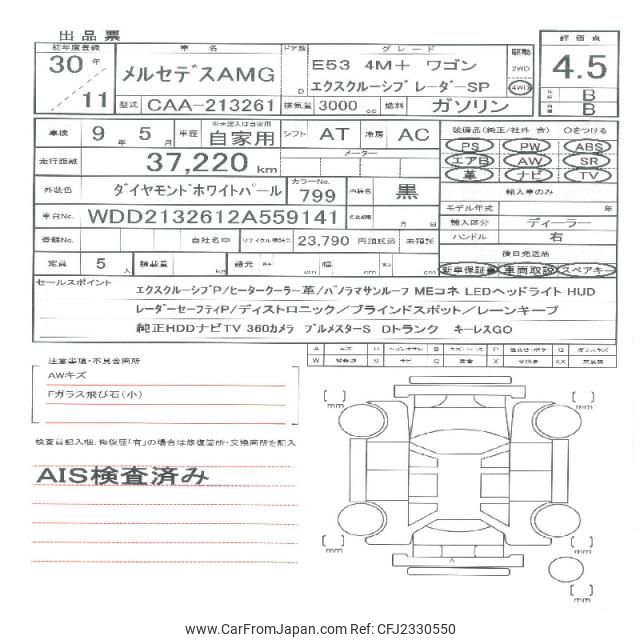 出品票
初年度登録 車名 ドア数 グレード 駆動 評価点
30年 メルセデスAMG D E53 4M+ ワゴン 2WD 4.5
エクスクルーシブ レーダーSP 4WD
11 型式 CAA-213261 排気量 3000 cc 燃料 ガソリン B
B
車検 9年5月 車歴 自家用 シフト AT 冷房 AC 装備品(純正/社外 含) Oをつける
PS PW ABS
走行距離 37,220 km メーター エアB AW SR
革 ナビ TV
外装色 ダイヤモンドホワイトパール カラーNo. 799 内装色 黒 輸入車のみ
モデル年式 年
車台No. WDD2132612A559141 月 日 輸入区分 ディーラー
登録No. 自社名申 リサイクル預託金 23,790 円預託済 未預託 ハンドル 右
定員 5人 積載量 kg 諸元 長 cm 幅 cm 高 cm 後日発送品
新車保証書 車両取説 スペアキー
セールスポイント
エクスクルーシブP/ヒータークーラー革/パノラマサンルーフ MEコネ LEDヘッドライト HUD
レーダーセーフティP/ディストロニック/ブラインドスポット/レーンキープ
純正HDDナビTV 360カメラ ブルメスターS Dトランク キーレスGO
注意事項・不具合箇所
AWキズ
Fガラス飛び石(小)
検査員記入欄、修復歴「有」の場合は修復箇所・交換箇所を記入
AIS検査済み
mm
mm
mm
mm
mm
A
www.CarFromJapan.com Ref: CFJ2330550